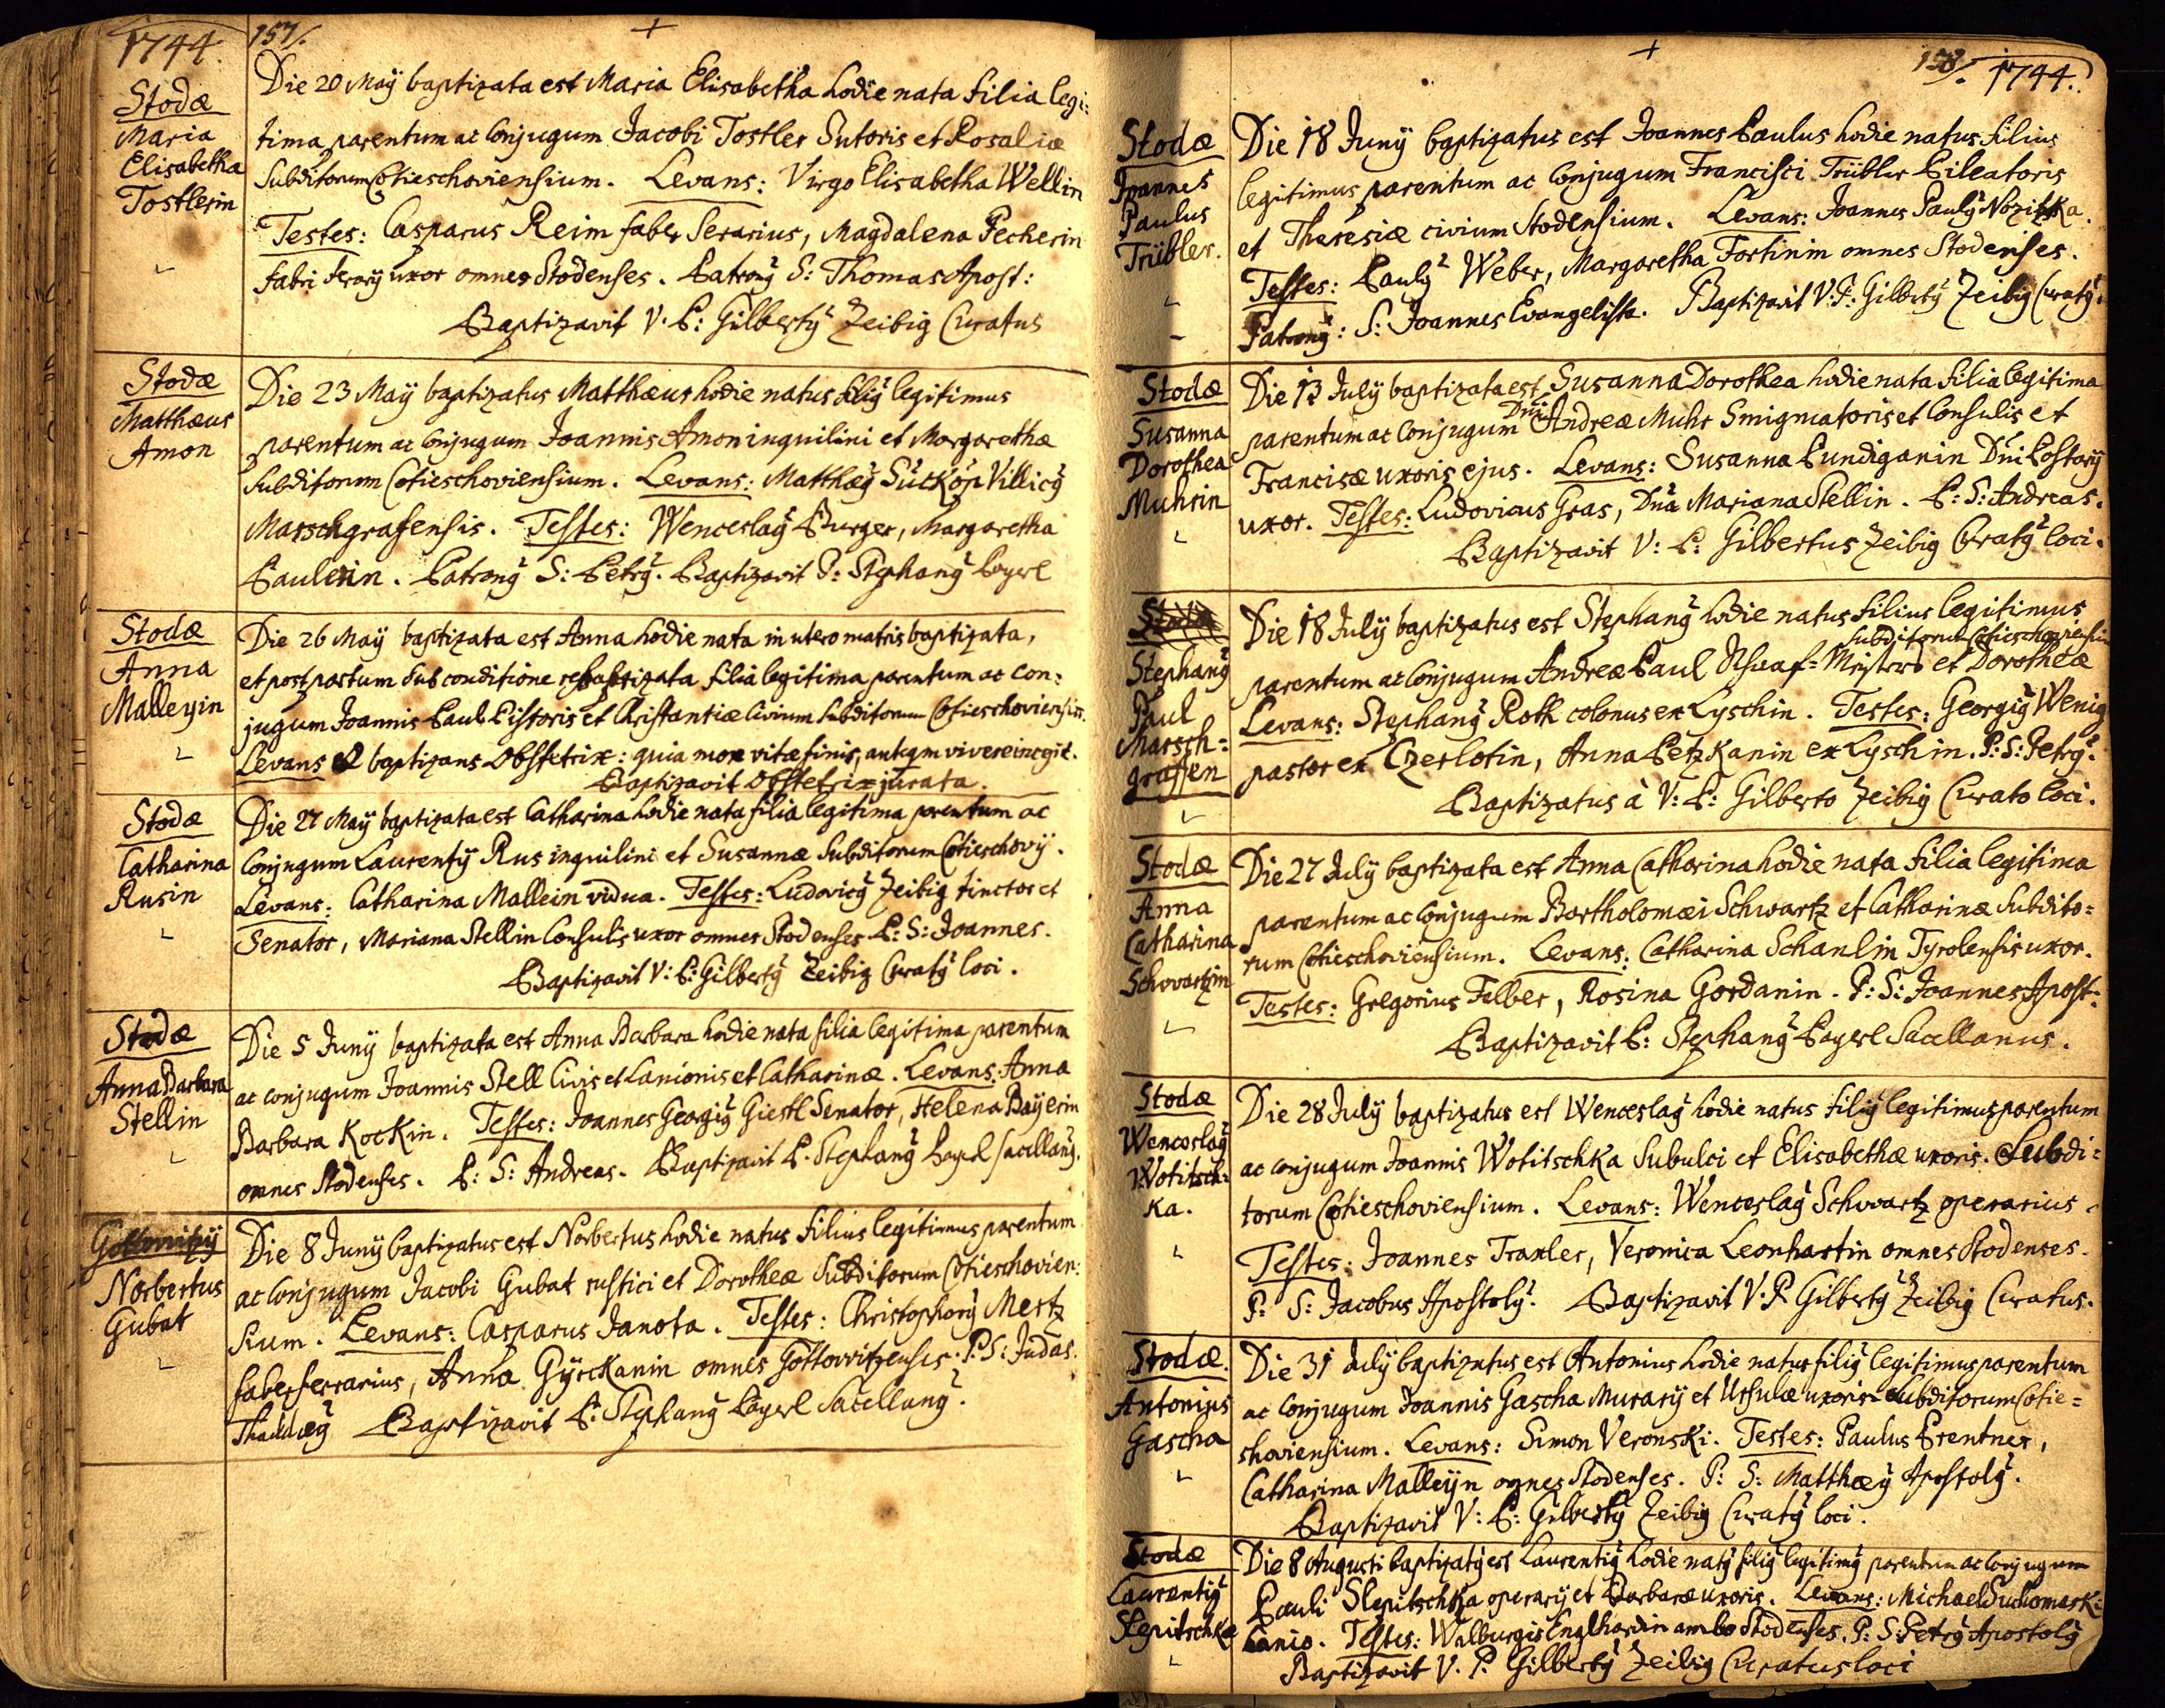 1744.
157/.
Stodæ
Maria
Elisabetha
Tostlerin
Die 20 Maÿ baptizata est Maria Elisabetha hodie nata filia legi:
tima parentum ac Conjugum Jacobi Tostler Sutoris et Rosaliæ
Subditorum Cotieschoviensium. Levans: Virgo Elisabetha Wellin
Testes: Casparus Reim faber Serarius, Magdalena Pecherin
fabri serarÿ uxor omnes Stodenses. Patronꝰ S: Thomas Apost:
Baptizavit V. P: Gilbertꝰ Zeibig Curatus
Stodæ
Matthæus
Amon
Die 23 Maÿ baptizatus Matthæus hodie natus filiꝰ legitimus
parentum ac Conjugum Joannis Amon inquilini et Margarethæ
Subditorum Cotieschoviensium. Levans: Matthæꝰ Sücköp Villicꝰ
Marschgrafensis. Testes: Wenceslaꝰ Burger, Margaretha
Paulerin. Patronꝰ S: Petrꝰ. Baptizavit P: Stephanꝰ Payerl
Stodæ
Anna
Malleyin
Die 26 Maÿ baptizata est Anna hodie nata in utero matris baptizata,
et post partum sub conditione rebaptizata filia legitima parentum ac con:
jugum Joannis Paul Pistoris et Christantiæ Civium Subditorum Cotieschoviensium.
Levans et baptizans Obstetrix: quia mox vitæ finis, antequam vivere incepit.
Baptizavit Obstetrix jurata.
Stodæ
Catharina
Rusin
Die 27 Maÿ baptizata est Catharina hodie nata filia legitima parentum ac
Conjugum Laurentÿ Rus inquilini et Susannæ Subditorum Cotieschovÿ.
Levans: Catharina Mallein vidua. Testes: Ludovicꝰ Zeibig tinctor et
Senator, Mariana Stellin Consulis uxor omnes Stodenses P: S: Joannes.
Baptizavit V: P: Gilbertꝰ Zeibig Curatꝰ loci.
Stodæ
Anna Barbara
Stellin
Die 5 Junÿ baptizata est Anna Barbara hodie nata filia legitima parentum
ac conjugum Joannis Stell Civis et Lanionis et Catharinæ. Levans: Anna
Barbara Kockin. Testes: Joannes Georgiꝰ Giestl Senator, Helena Bayerin
omnes Stodenses. P: S: Andreas. Baptizavit P. Stephanꝰ Payerl Sacellanꝰ.
Gottowitzÿ
Norbertus
Gubat
Die 8 Junÿ baptizatus est Norbertus hodie natus filius legitimus parentum
ac conjugum Jacobi Gubat rustici et Dorotheæ Subditorum Cotieschovien:
sium. Levans: Casparus Janota. Testes: Christophorꝰ Mertz
faber ferrarius, Anna Gyrckanin omnes Gottowitzenses. P: S: Judas
Thaddæꝰ Baptizavit P: Stephanꝰ Payerl Sacellanꝰ.
158/. 1744.
Stodæ
Joannes
Paulus
Trübler.
Die 18 Junÿ baptizatus est Joannes Paulus hodie natus filius
legitimus parentum ac Conjugum Francisci Trübler Pileatoris
et Theresiæ civium Stodensium. Levans: Joannes Paulꝰ Nozitzka.
Testes: Paulꝰ Weber, Margaretha Fortinin omnes Stodenses.
Patronꝰ: S: Joannes Evangelista. Baptizavit V: P: Gilbertꝰ Zeibig Curatꝰ.
Stodæ
Susanna
Dorothea
Muhrin
Die 13 July baptizata est Susanna Dorothea hodie nata filia legitima
parentum ac Conjugum Dni Andreæ Muhr Smigmatoris et Consulis et
Francisæ uxoris ejus. Levans: Susanna Pundiganin Dni Postorÿ
uxor. Testes: Ludovicus Gras, Dna Mariana Stellin. P: S: Andreas.
Baptizavit V: P: Gilbertus Zeibig Curatꝰ loci.
Stodæ
Stephanꝰ
Paul
Marsch=
graffen
Die 18 July baptizatus est Stephanꝰ hodie natus filius legitimus
Subditorum Cotieschoviensium
parentum ac Conjugum Andreæ Paul Schaaf=Meisters et Dorotheæ
Levans: Stephanꝰ Roth colonus ex Lyschin. Testes: Georgiꝰ Wenig
pastor ex Czerlotin, Anna Petzkanin ex Lyschin. P: S: Petrꝰ.
Baptizatus à V: P: Gilberto Zeibig Curato loci.
Stodæ
Anna
Catharina
Schwartzin
Die 27 July baptizata est Anna Catharina hodie nata filia legitima
parentum ac Conjugum Bartholomæi Schwartz et Catharinæ Subdito=
rum Cotieschoviensium. Levans: Catharina Schanlin Tyrolensis uxor.
Testes: Gregorius Felber, Rosina Gordanin. P: S: Joannes Apost:
Baptizavit P: Stephanꝰ Payerl Sacellanus.
Stodæ
Wenceslaꝰ
Wotitsch=
ka.
Die 28 July baptizatus est Wenceslaꝰ hodie natus filiꝰ legitimus parentum
ac conjugum Joannis Wotitschka Subulci et Elisabethæ uxoris. Subdi=
torum Cotieschoviensium. Levans: Wenceslaꝰ Schwartz operarius.
Testes: Joannes Traxler, Veronica Leonhartin omnes Stodenses.
P: S: Jacobus Apostolꝰ. Baptizavit V: P. Gilbertꝰ Zeibig Curatus.
Stodæ.
Antonius
Gascha
Die 31 July baptizatus est Antonius hodie natus filiꝰ legitimus parentum
ac Conjugum Joannis Gascha Murarÿ et Ursulæ uxoris Subditorum Cotie=
schoviensium. Levans: Simon Veronski. Testes: Paulus Prentner,
Catharina Malleyn omnes Stodenses. P: S: Matthæꝰ Apostolꝰ.
Baptizavit V: P: Gilbertꝰ Zeibig Curatꝰ loci.
Stodæ
Laurentiꝰ
Slepitschka
Die 8 Augusti baptizatꝰ est Laurentiꝰ hodie natꝰ filiꝰ legitimꝰ parentum ac Conjugum
Pauli Slepitschka operarÿ et Barbaræ uxoris. Levans: Michael Suchomaski
Lanio. Testes: Walburgis Englhardin ambo Stodenses. P: S: Petrꝰ Apostolꝰ
Baptizavit V. P. Gilbertꝰ Zeibig Curatus loci